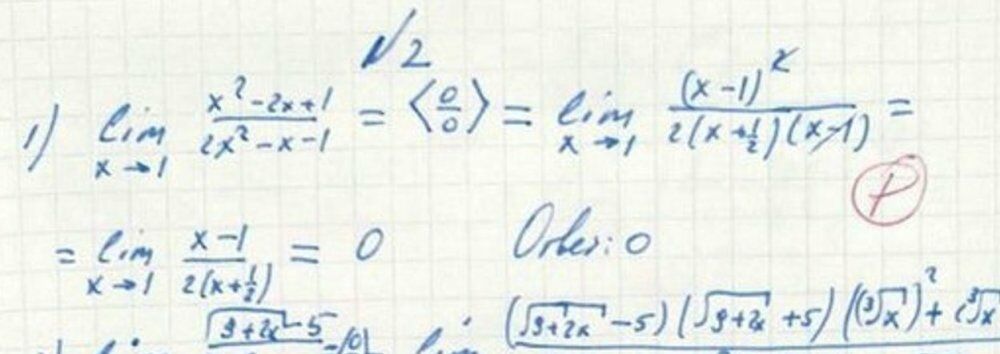 №2
1) lim x→1 (x²-2x+1)/(2x²-x-1) = <0/0> = lim x→1 (x-1)²/(2(x+1/2)(x-1)) =
P
= lim x→1 (x-1)/(2(x+1/2)) = 0 Ответ: 0
lim √9+2x -5 (√9+2x -5)(√9+2x +5)((³√x)²+